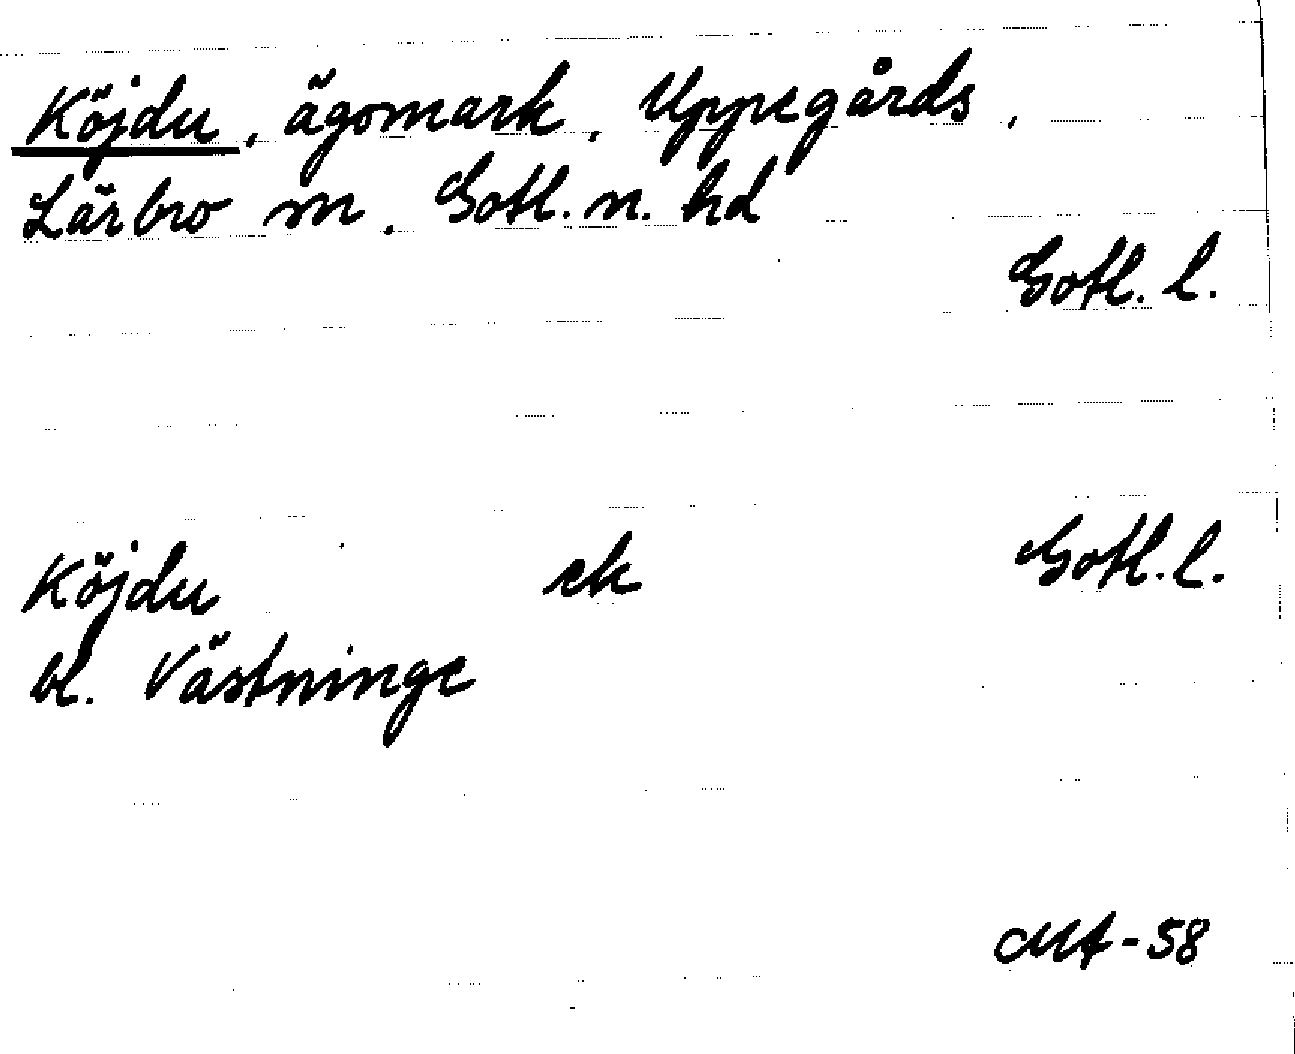 Köjdu, ägomark, Uppegårds,
Lärbro sn, Gotl. n. hd
Gotl. l.
Köjdu ek Gotl. l.
bl. Västninge
MA-58